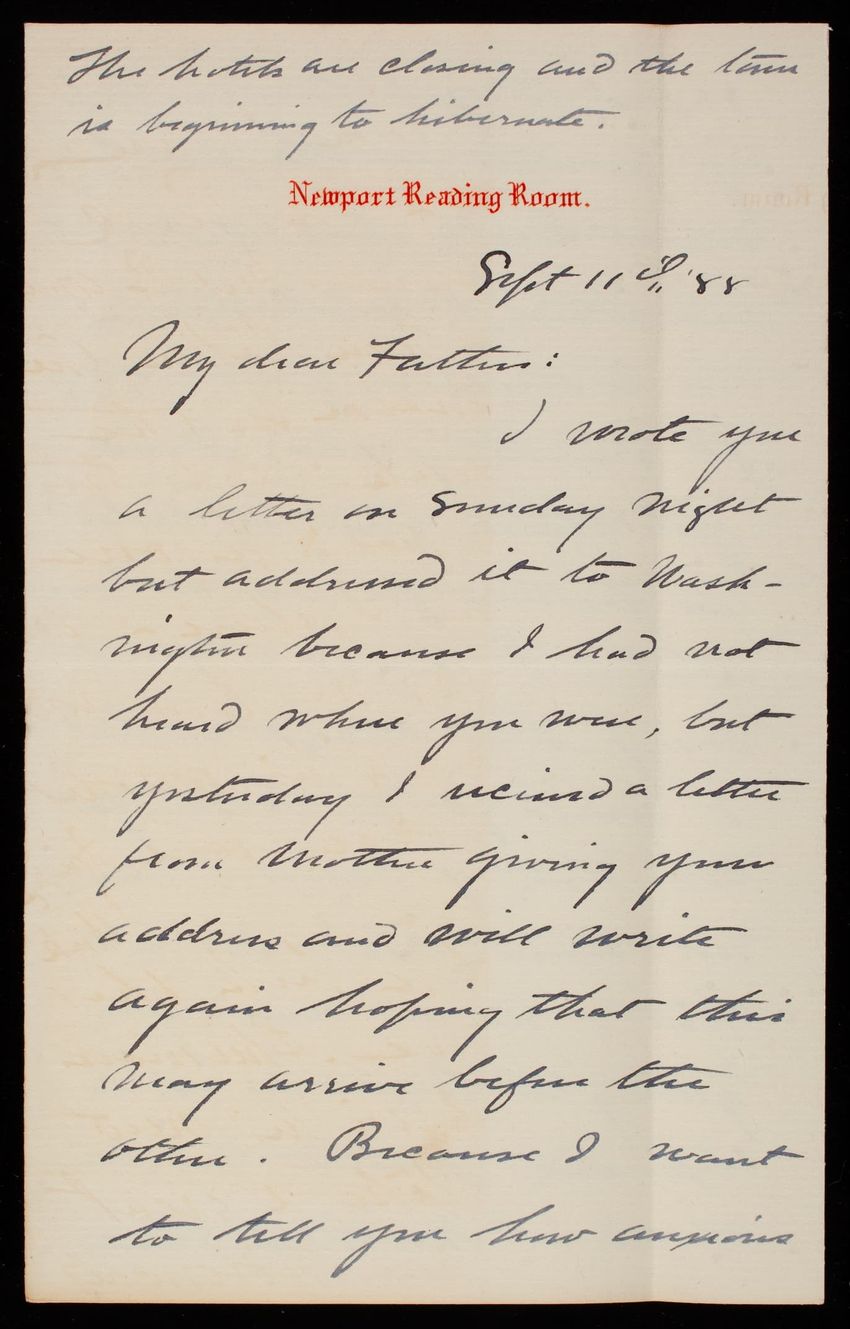 The hotels are closing and the town
is beginning to hibernate.
Newport Reading Room.
Sept 11th, '88
My dear Father:
I wrote you
a letter on Sunday night
but addressed it to Wash-
ington because I had not
heard where you were, but
yesterday I recieved a letter
from Mother giving your
address and will write
again hoping that this
may arrive before the
other. Because I want
to tell you how anxious